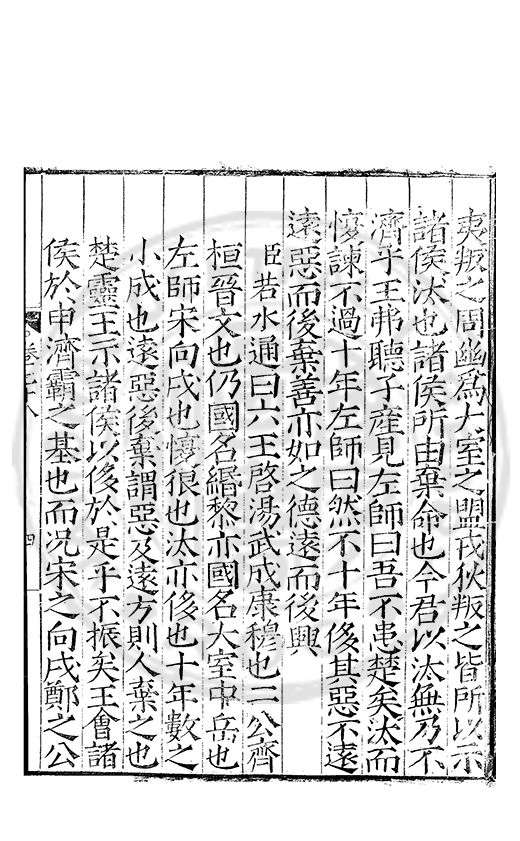 夷叛之周幽為大室之盟戎狄叛之皆所以示
諸侯汰也諸侯所由棄命也今君以汰無乃不
濟乎王弗聽子產見左師曰吾不患楚矣汰而
愎諫不過十年左師曰然不十年侈其惡不遠
遠惡而後棄善亦如之德遠而後興
臣若水通曰六王啓湯武成康穆也二公齊
桓晉文也仍國名緡黎亦國名大室中岳也
左師宋向戌也愎很也汰亦侈也十年數之
小成也遠惡後棄謂惡及遠方則人棄之也
楚靈王示諸侯以侈於是乎不振矣王會諸
侯於申濟霸之基也而況宋之向戌鄭之公
卷之十八
四